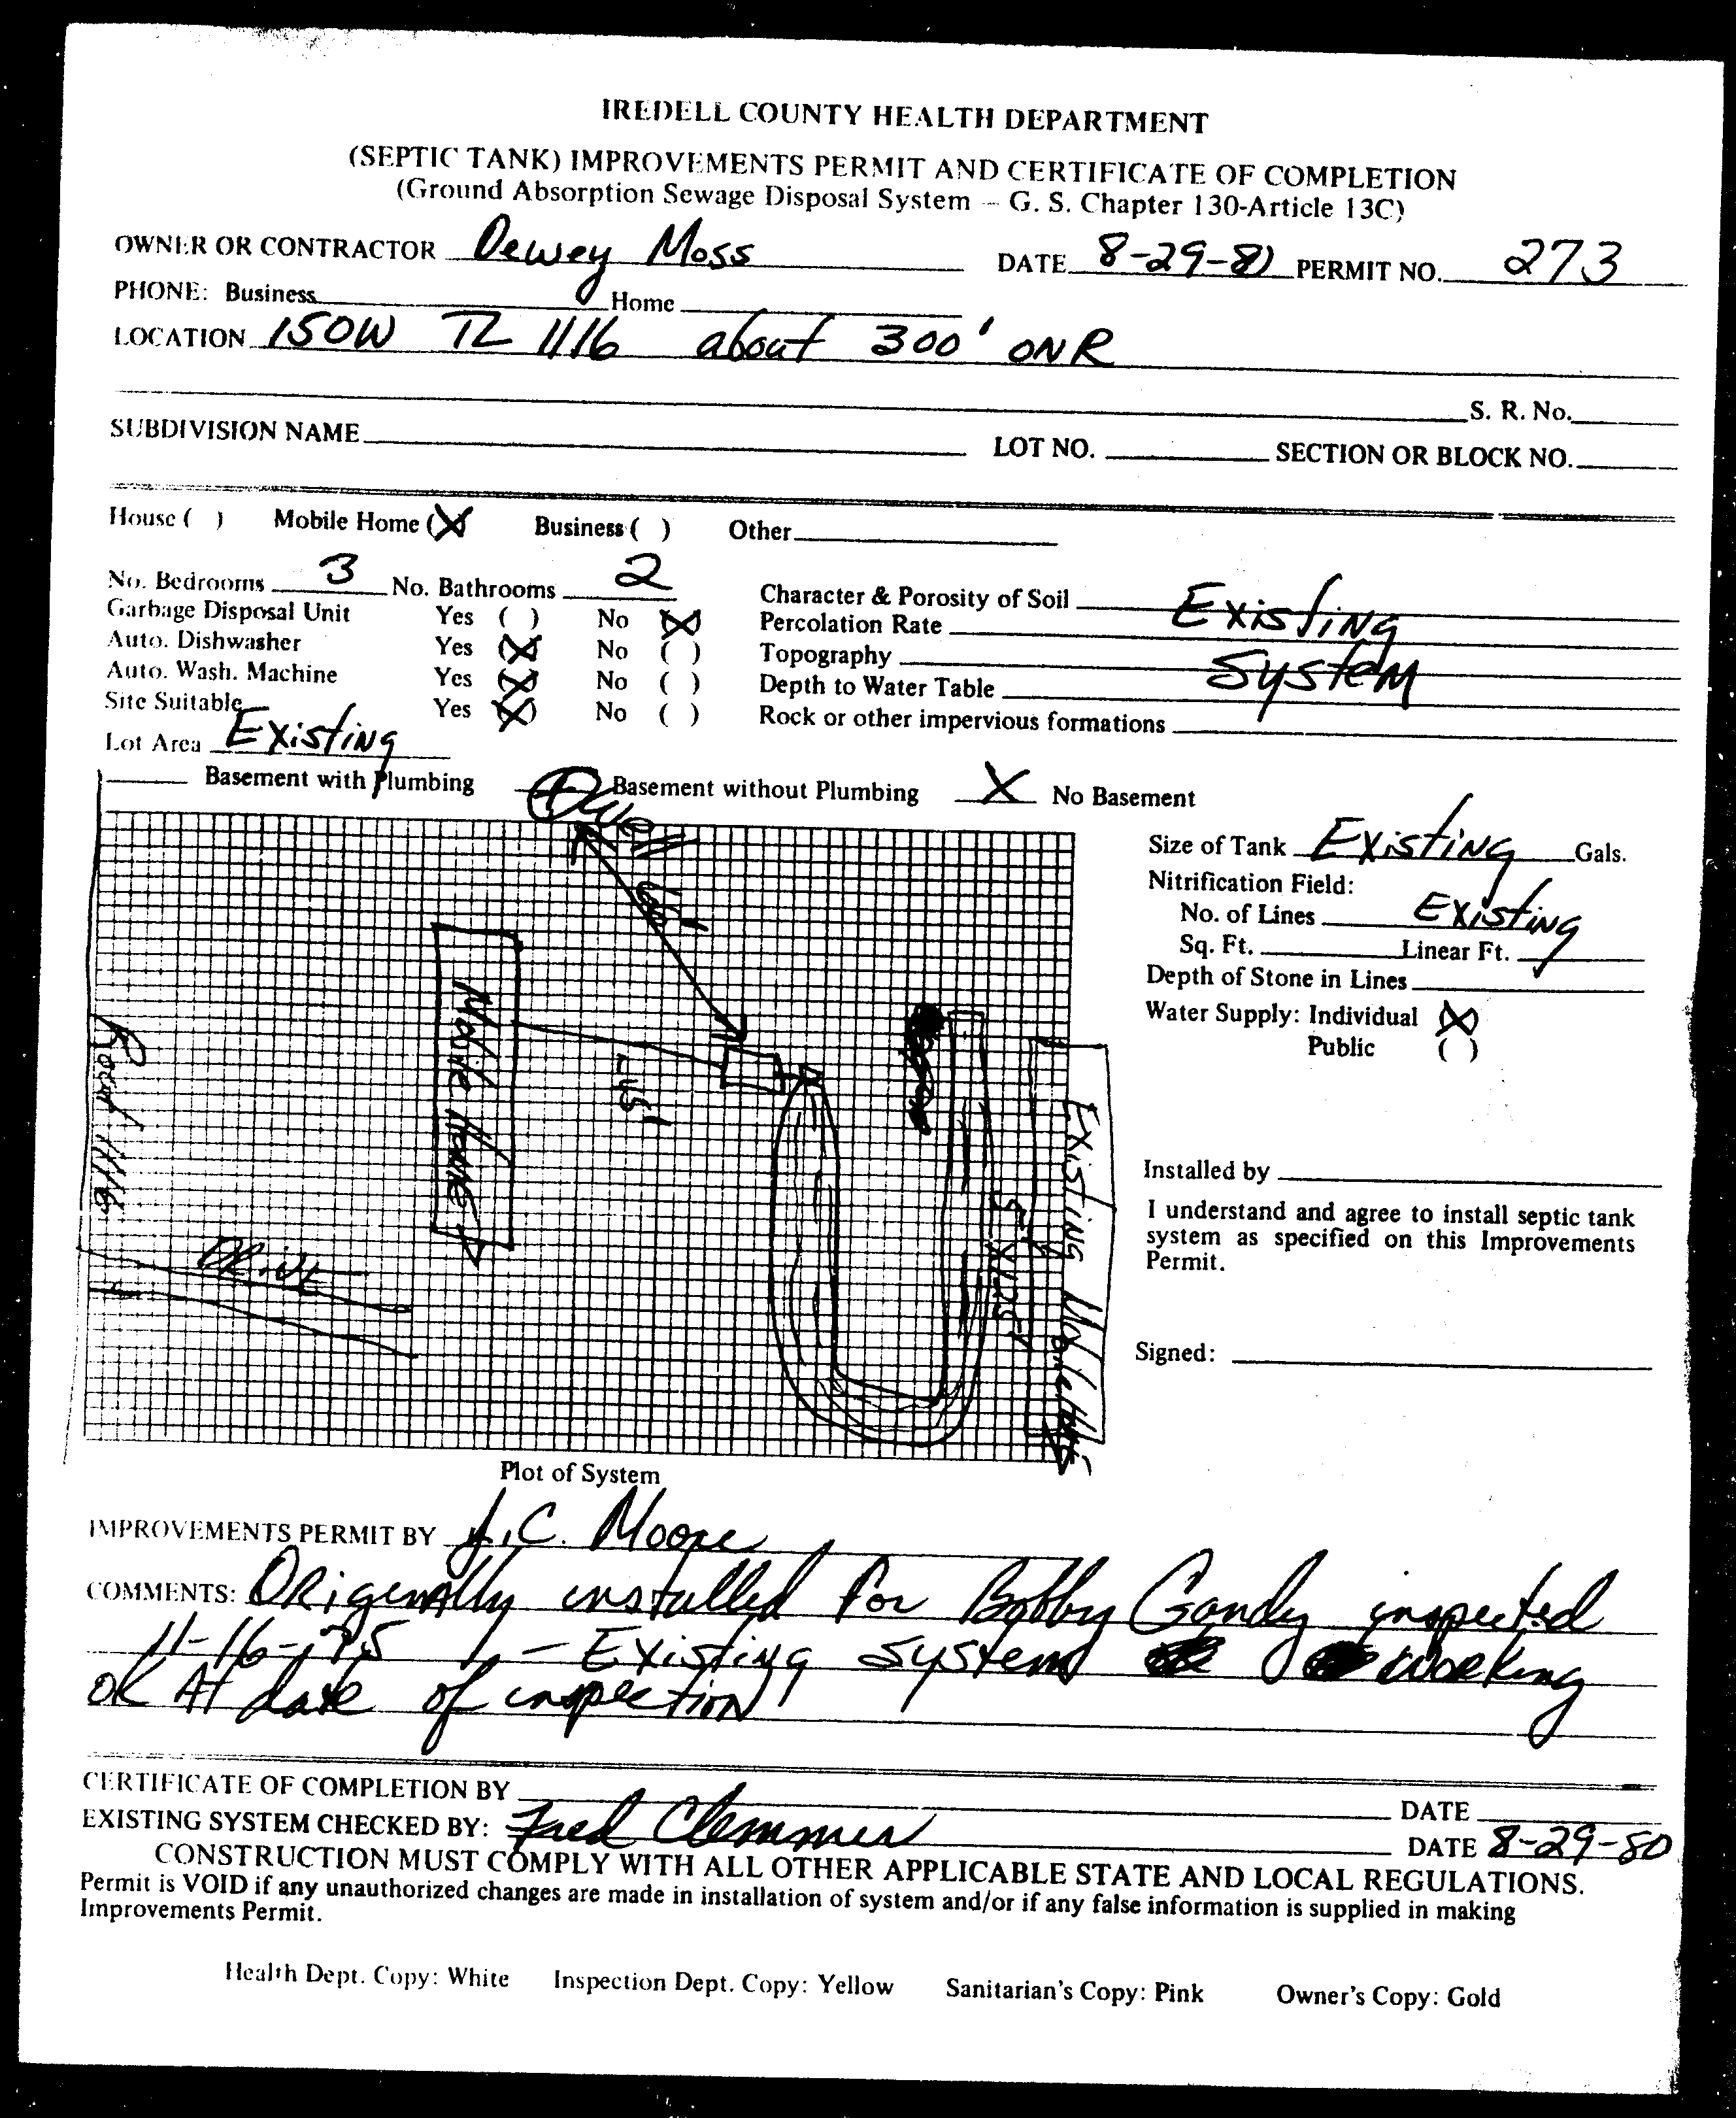 IREDELL COUNTY HEALTH DEPARTMENT
(SEPTIC TANK) IMPROVEMENTS PERMIT AND CERTIFICATE OF COMPLETION
(Ground Absorption Sewage Disposal System – G. S. Chapter 130-Article 13C)
OWNER OR CONTRACTOR Dewey Moss DATE 8-29-80 PERMIT NO. 273
PHONE: Business Home
LOCATION 150W TL 1116 about 300' ON R
S. R. No.
SUBDIVISION NAME LOT NO. SECTION OR BLOCK NO.
House ( ) Mobile Home (X) Business ( ) Other
No. Bedrooms 3 No. Bathrooms 2
Garbage Disposal Unit Yes ( ) No (X)
Auto. Dishwasher Yes (X) No ( )
Auto. Wash. Machine Yes (X) No ( )
Site Suitable Yes (X) No ( )
Lot Area Existing
Character & Porosity of Soil Existing
Percolation Rate
Topography System
Depth to Water Table
Rock or other impervious formations
Basement with Plumbing Basement without Plumbing X No Basement
Well
60'
Mobile Home
45'
Road 1116
Drive
Existing Mobile Home
Plot of System
Size of Tank Existing Gals.
Nitrification Field:
No. of Lines Existing
Sq. Ft. Linear Ft.
Depth of Stone in Lines
Water Supply: Individual (X)
Public ( )
Installed by
I understand and agree to install septic tank
system as specified on this Improvements
Permit.
Signed:
IMPROVEMENTS PERMIT BY J.C. Moore
COMMENTS: Originally installed for Bobby Gandy inspected
11-16-75 – Existing system working
OK At date of inspection
CERTIFICATE OF COMPLETION BY DATE
EXISTING SYSTEM CHECKED BY: Fred Clemmer DATE 8-29-80
CONSTRUCTION MUST COMPLY WITH ALL OTHER APPLICABLE STATE AND LOCAL REGULATIONS.
Permit is VOID if any unauthorized changes are made in installation of system and/or if any false information is supplied in making
Improvements Permit.
Health Dept. Copy: White Inspection Dept. Copy: Yellow Sanitarian's Copy: Pink Owner's Copy: Gold